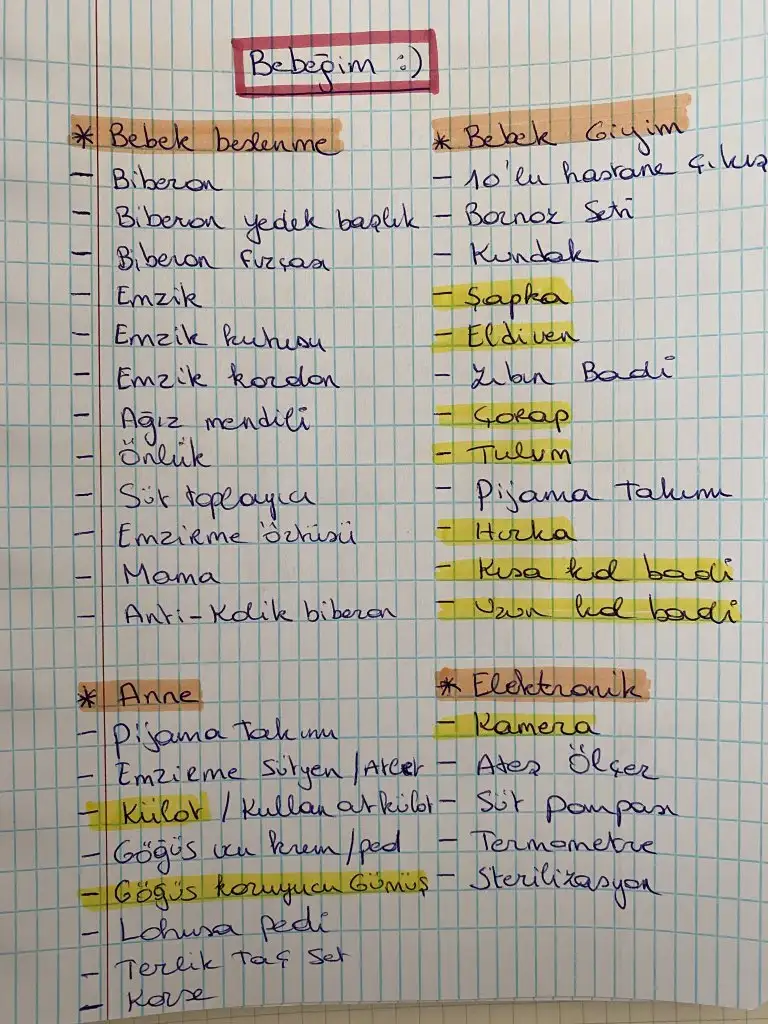 Bebeğim :)
* Bebek beslenme
- Biberon
- Biberon yedek başlık
- Biberon fırçası
- Emzik
- Emzik kutusu
- Emzik kordon
- Ağız mendili
- Önlük
- Süt toplayıcı
- Emzirme örtüsü
- Mama
- Anti-Kolik biberon
* Bebek Giyim
- 10'lu hastane çıkış
- Bornoz Seti
- Kundak
- Şapka
- Eldiven
- Zıbın Badi
- Çorap
- Tulum
- Pijama Takımı
- Hırka
- Kısa kol badi
- Uzun kol badi
* Anne
- Pijama Takımı
- Emzirme Sütyen / Atlet
- Külot / Kullan at külot
- Göğüs ucu krem/ped
- Göğüs koruyucu Gümüş
- Lohusa pedi
- Terlik Taç Set
- Korse
* Elektronik
- Kamera
- Ateş Ölçer
- Süt pompası
- Termometre
- Sterilizasyon